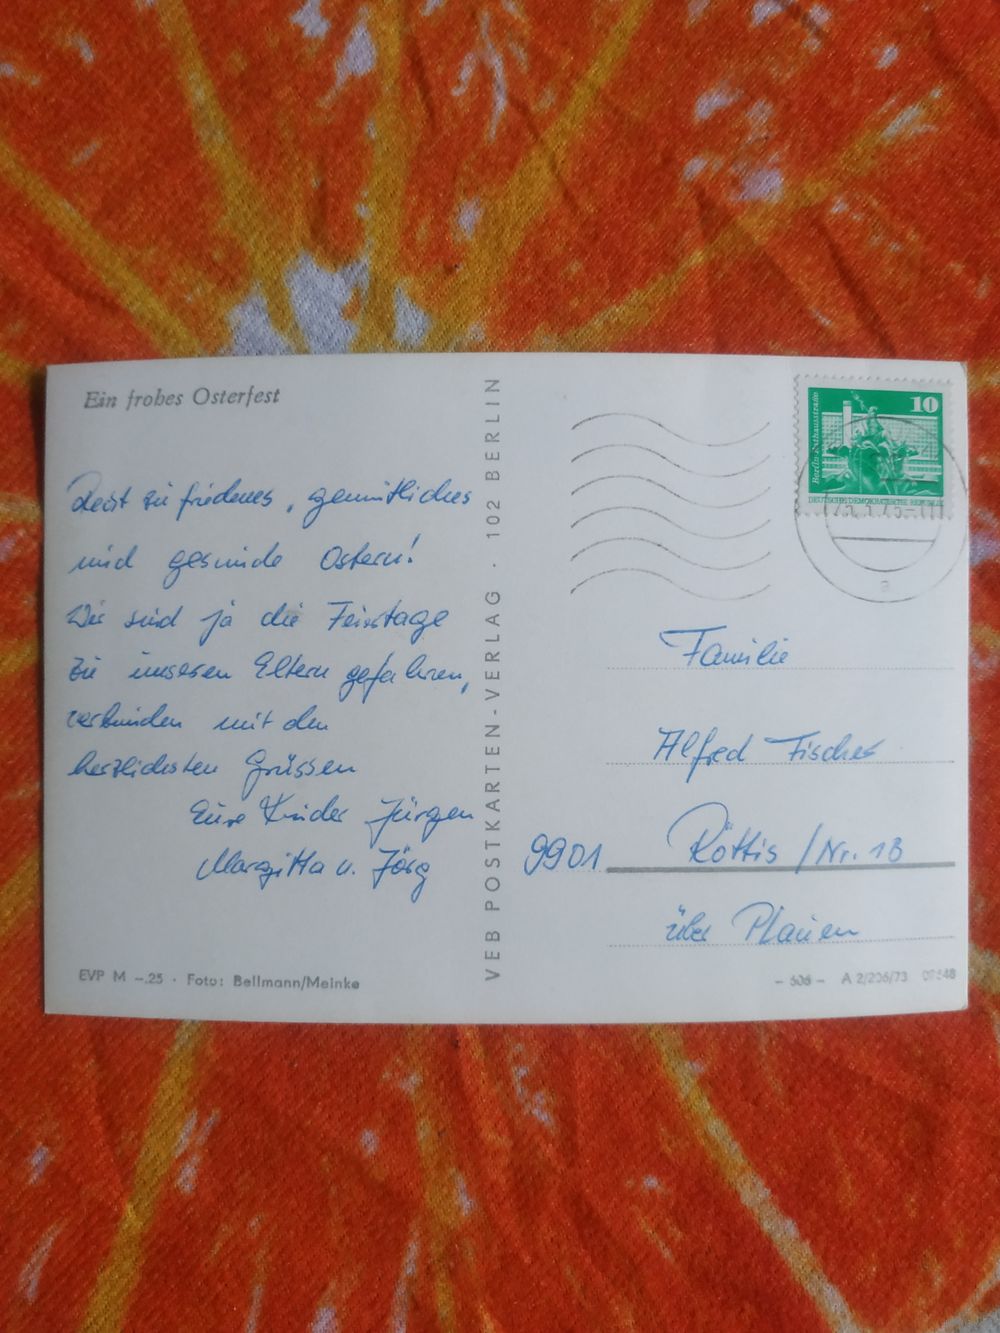 Ein frohes Osterfest
Recht zufriedenes, gemütliches
und gesunde Ostern!
Wir sind ja die Feiertage
zu unseren Eltern gefahren,
verbunden mit den
herzlichsten Grüssen
Eure Kinder Jürgen
Margitta u. Jörg
EVP M -.25 · Foto: Bellmann/Meinke
VEB POSTKARTEN-VERLAG · 102 BERLIN
10
Berlin-Rathausstraße
DEUTSCHE DEMOKRATISCHE REPUBLIK
a
Familie
Alfred Fischer
9901 Röttis / Nr. 1B
über Plauen
A 2/206/73